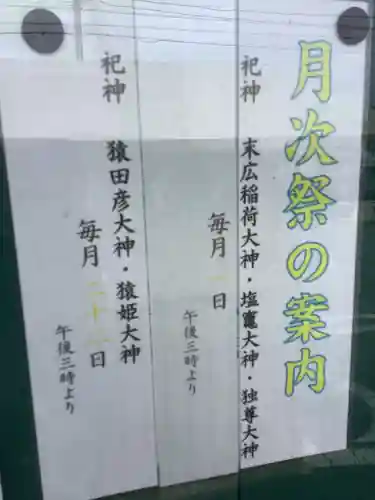 月次祭の案内
祀神 末広稲荷大神・塩竈大神・独尊大神
毎月一日
午後三時より
祀神 猿田彦大神・猿姫大神
毎月二十二日
午後三時より